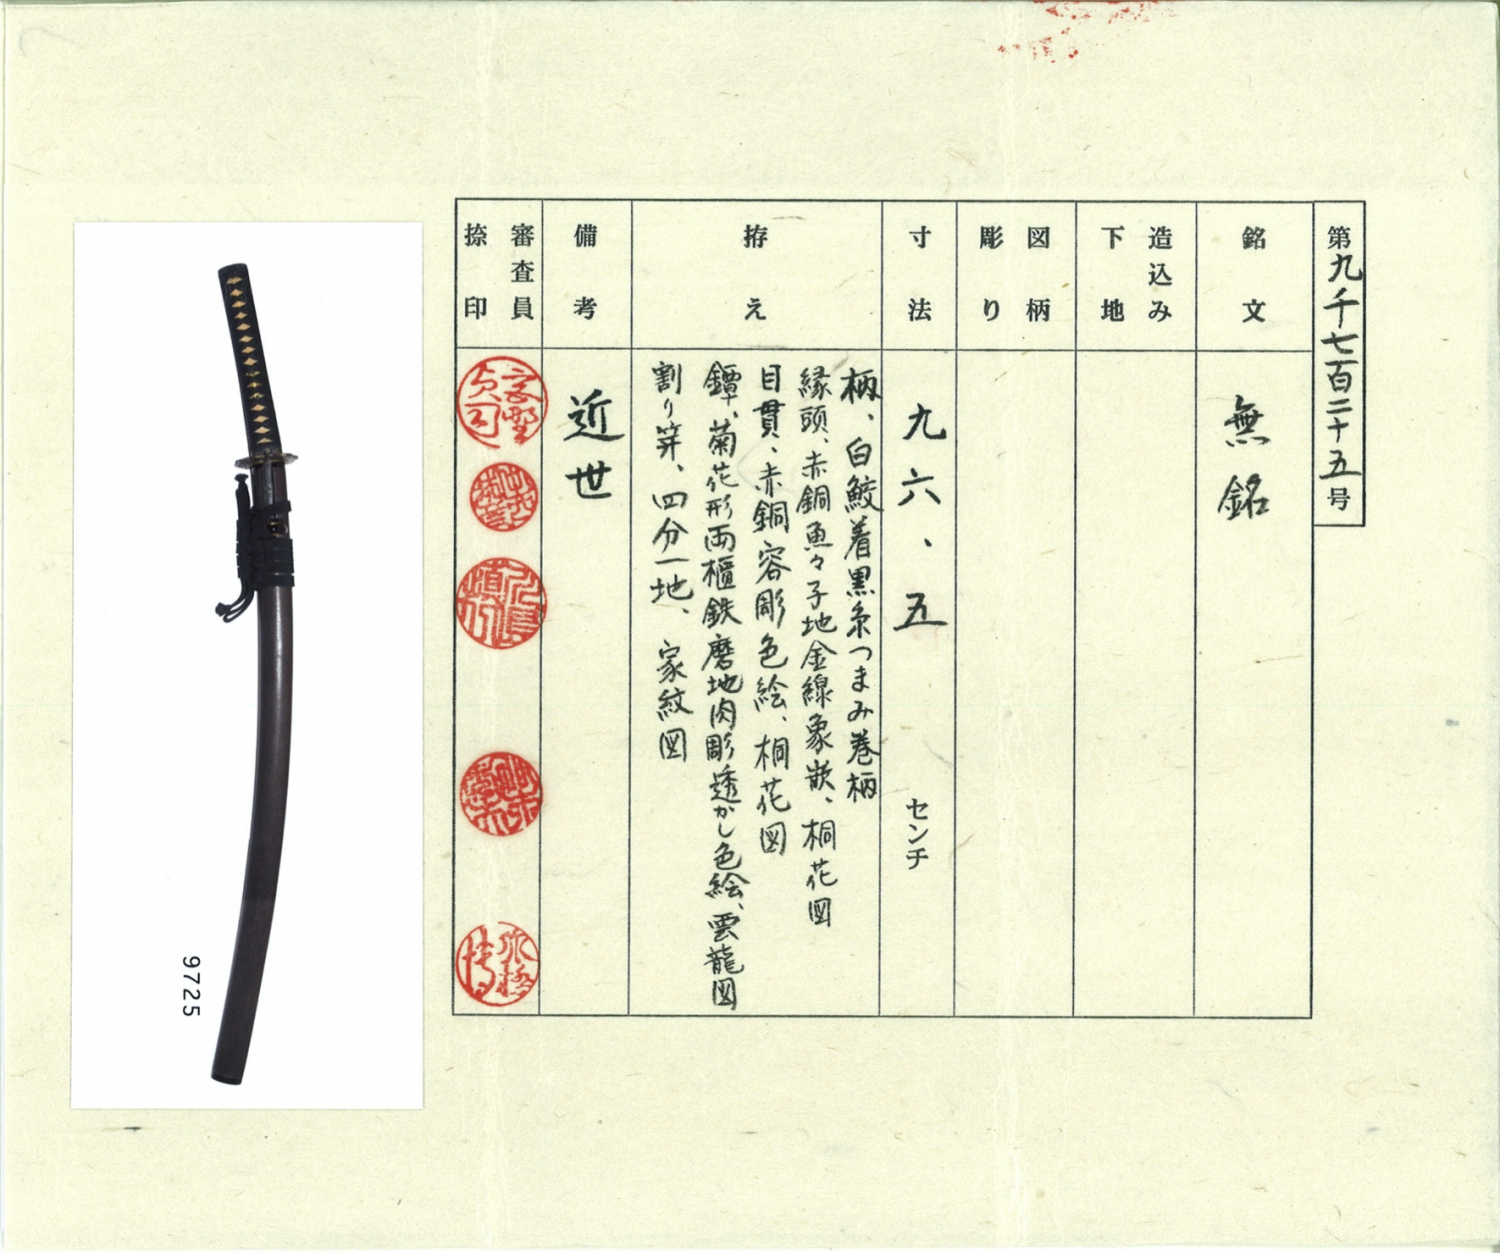 第九千七百二十五号
銘文
無銘
造込み
下地
図柄
彫り
寸法
九六、五 センチ
拵え
柄、白鮫着黒糸つまみ巻柄
縁頭、赤銅魚々子地金線象嵌、桐花図
目貫、赤銅容彫色絵、桐花図
鐔、菊花形両櫃鉄磨地肉彫透かし色絵、雲龍図
割り笄、四分一地、家紋図
備考
近世
審査員
捺印
9725